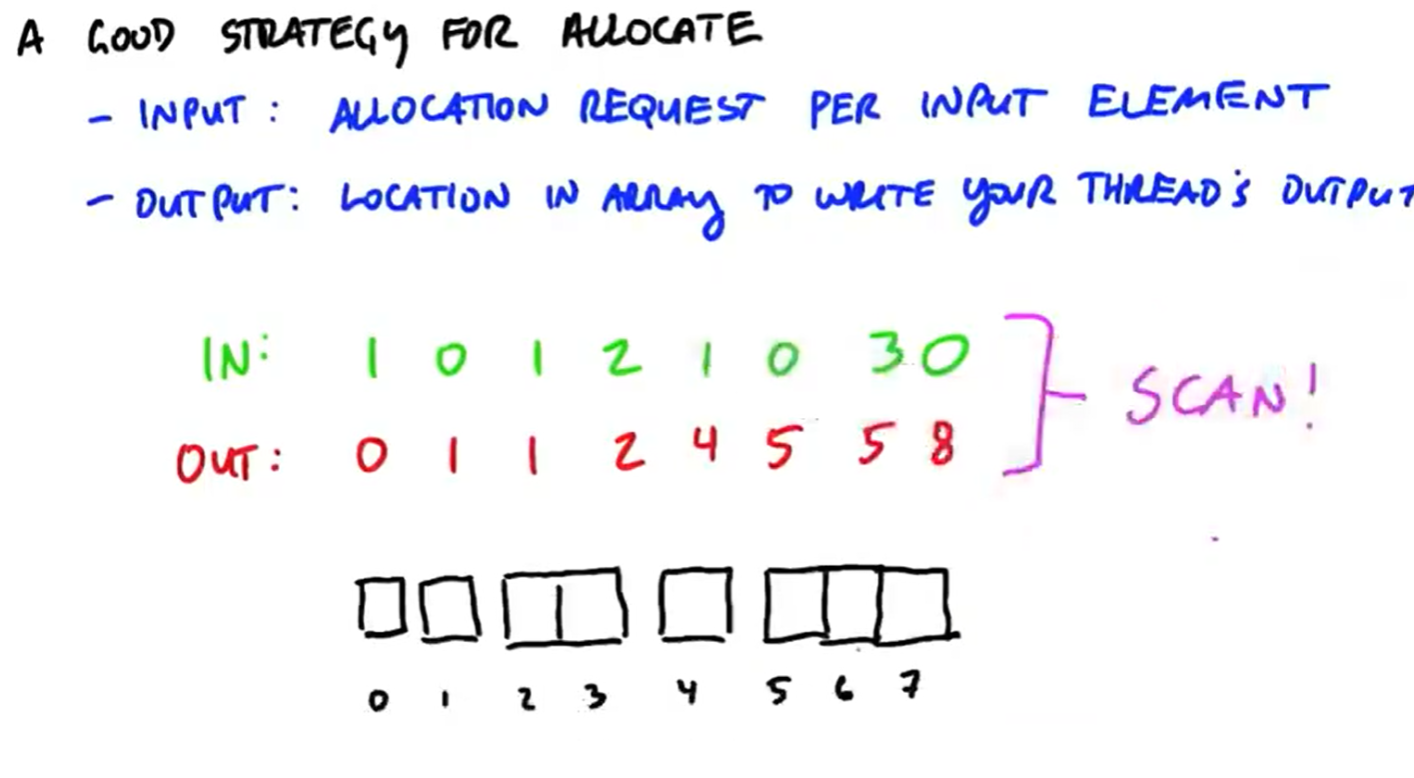 A GOOD STRATEGY FOR ALLOCATE
- INPUT: ALLOCATION REQUEST PER INPUT ELEMENT
- OUTPUT: LOCATION IN ARRAY TO WRITE YOUR THREAD'S OUTPUT
IN: 1 0 1 2 1 0 3 0
SCAN!
OUT: 0 1 1 2 4 5 5 8
0 1 2 3 4 5 6 7